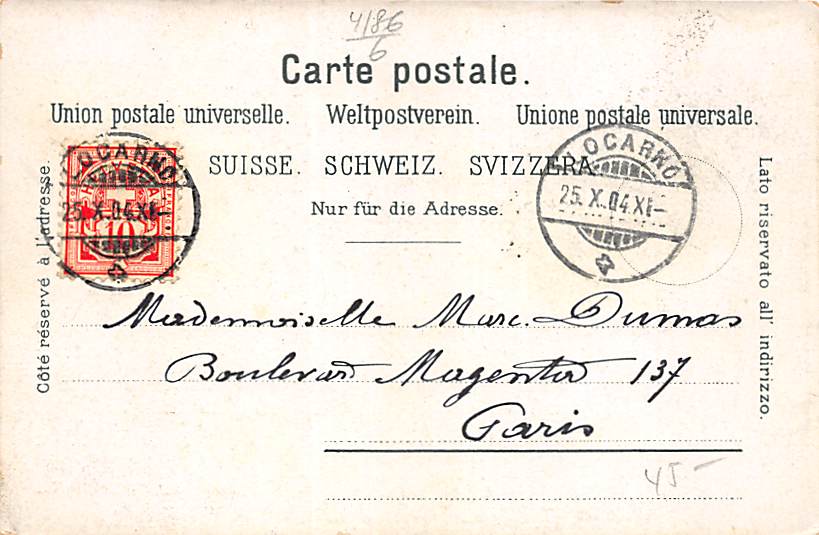 4/86
6
Carte postale.
Union postale universelle. Weltpostverein. Unione postale universale.
SUISSE. SCHWEIZ. SVIZZERA.
Nur für die Adresse.
Côté réservé à l'adresse.
Lato riservato all' indirizzo.
LOCARNO
25.X.04.XI–
10
LOCARNO
25.X.04.XI–
Mademoiselle Marc. Dumas
Boulevard Magenta 137
Paris
45–